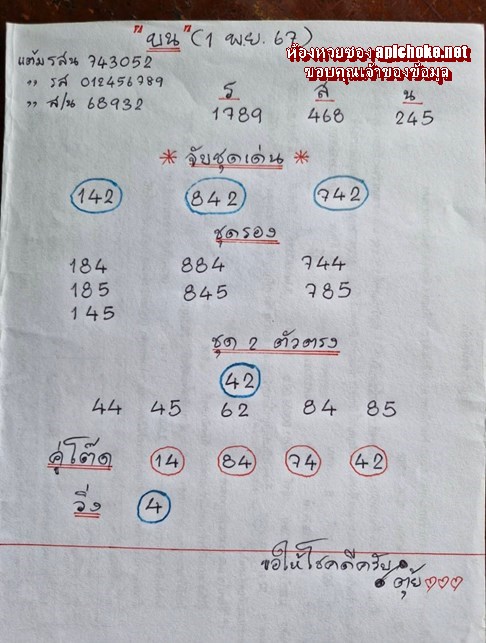 "บน" (1 พย. 67)
ห้องหวยซอง apichoke.net
ขอบคุณเจ้าของข้อมูล
แต้มรสน 743052
,, รส 012456789
,, ส/น 68932
ร ส น
1789 468 245
* จับชุดเด่น *
142 842 742
ชุดรอง
184 884 744
185 845 785
145
ชุด 2 ตัวตรง
42
44 45 62 84 85
คู่โต๊ด 14 84 74 42
วิ่ง 4
ขอให้โชคดีครับ
ตุ้ย